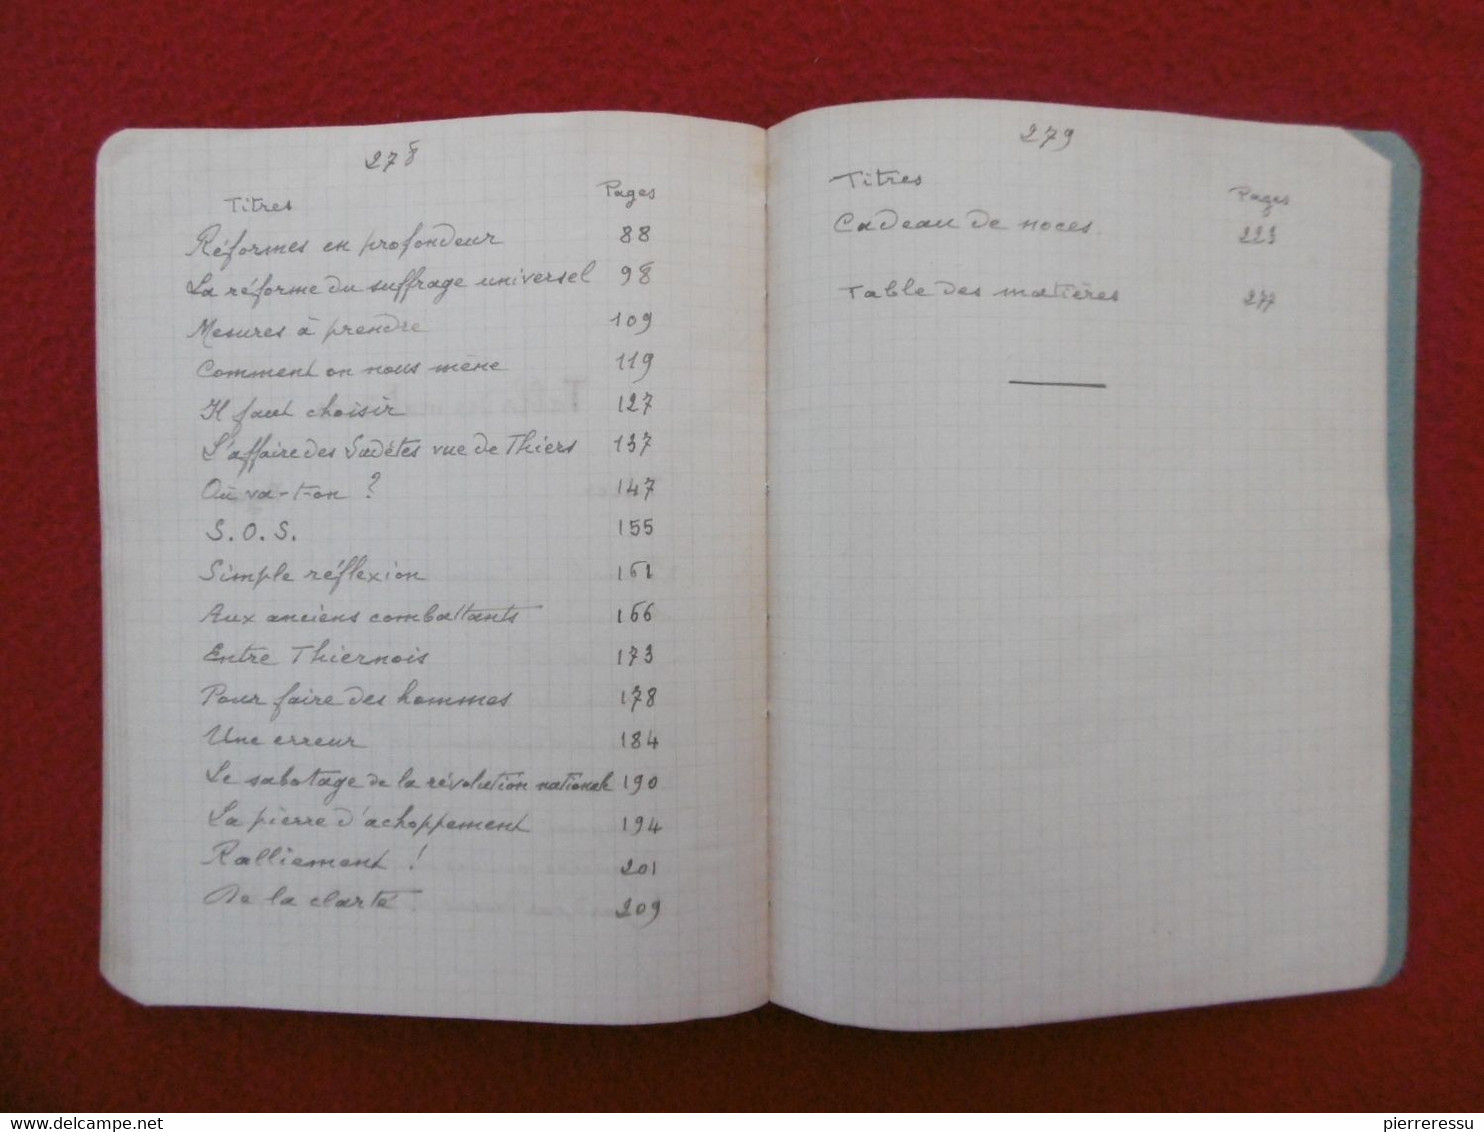 278
Titres Pages
Réformes en profondeur 88
La réforme du suffrage universel 98
Mesures à prendre 109
Comment on nous mène 119
Il faut choisir 127
L'affaire des Sudètes vue de Thiers 137
Où va-t-on ? 147
S.O.S. 155
Simple réflexion 161
Aux anciens combattants 166
Entre Thiernois 173
Pour faire des hommes 178
Une erreur 184
Le sabotage de la révolution nationale 190
La pierre d'achoppement 194
Ralliement ! 201
De la clarté ! 209
279
Titres Pages
Cadeau de noces. 223
Table des matières 277
www.delcampe.net
pierreressu